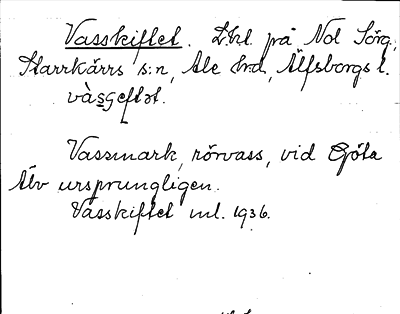 Vasskiftet. Lhl. på Nol Sörg.,
Starrkärrs s:n, Ale hrd, Älfsborgs l.
Vassmark, rörvass, vid Göta
Älv ursprungligen.
Vasskiftet unl. 1936.